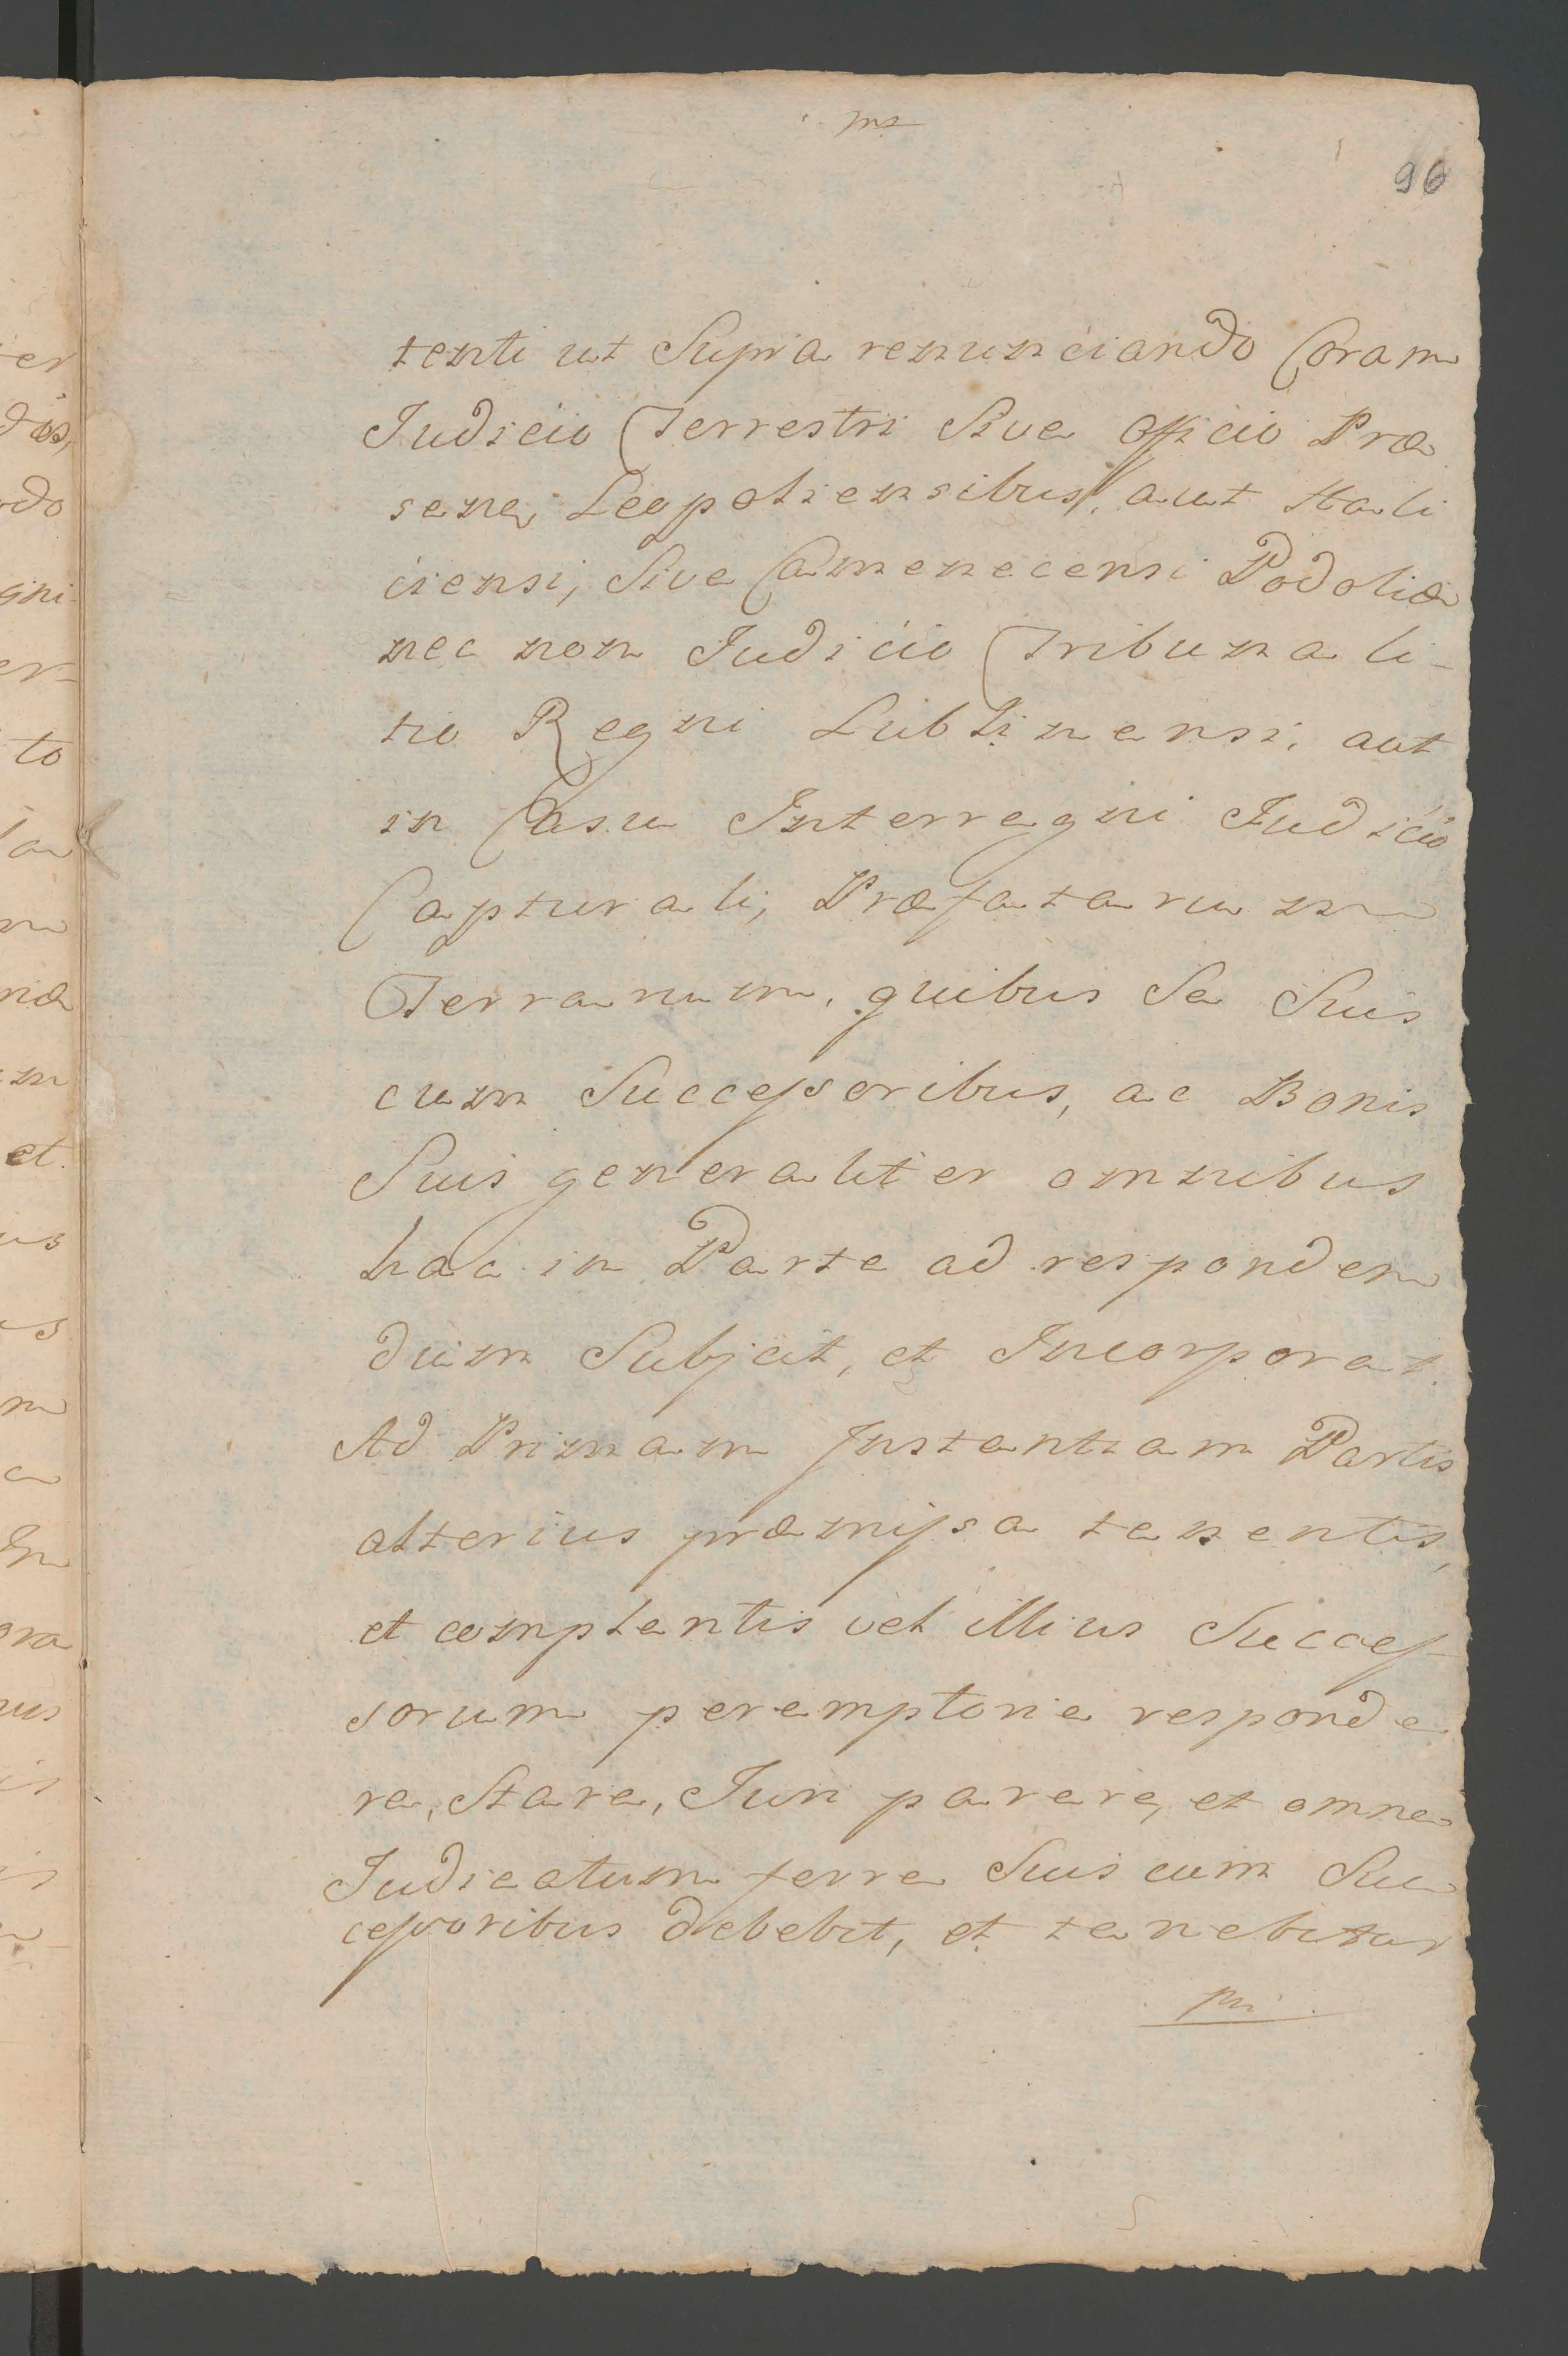 96
tenti ut Supra renunciando Coram
Judicio Terrestri Sive officio Præ
sene, Leopoliensibus, aut Hali
ciensi, Sive Camenecensi Podoliæ
nec non Judicio Tribunali-
tio Regni Lublinensi, aut
in Casu Interregni Judicio
Capturali, Præfatarum
Terrarum, quibus Se Suis
cum Successoribus, ac Bonis
Suis generaliter omnibus
hac in Parte ad responden
dum Subjcit, et Incorporat.
Ad Primam Instantiam Partis
alterius præmissa tenentis,
et complentis vel illius Succes-
sorum peremptorie responde
re, Stare, Juri parere, et omne
Judicatum ferre Suis cum Suc
cessoribus debebit, et tenebitur